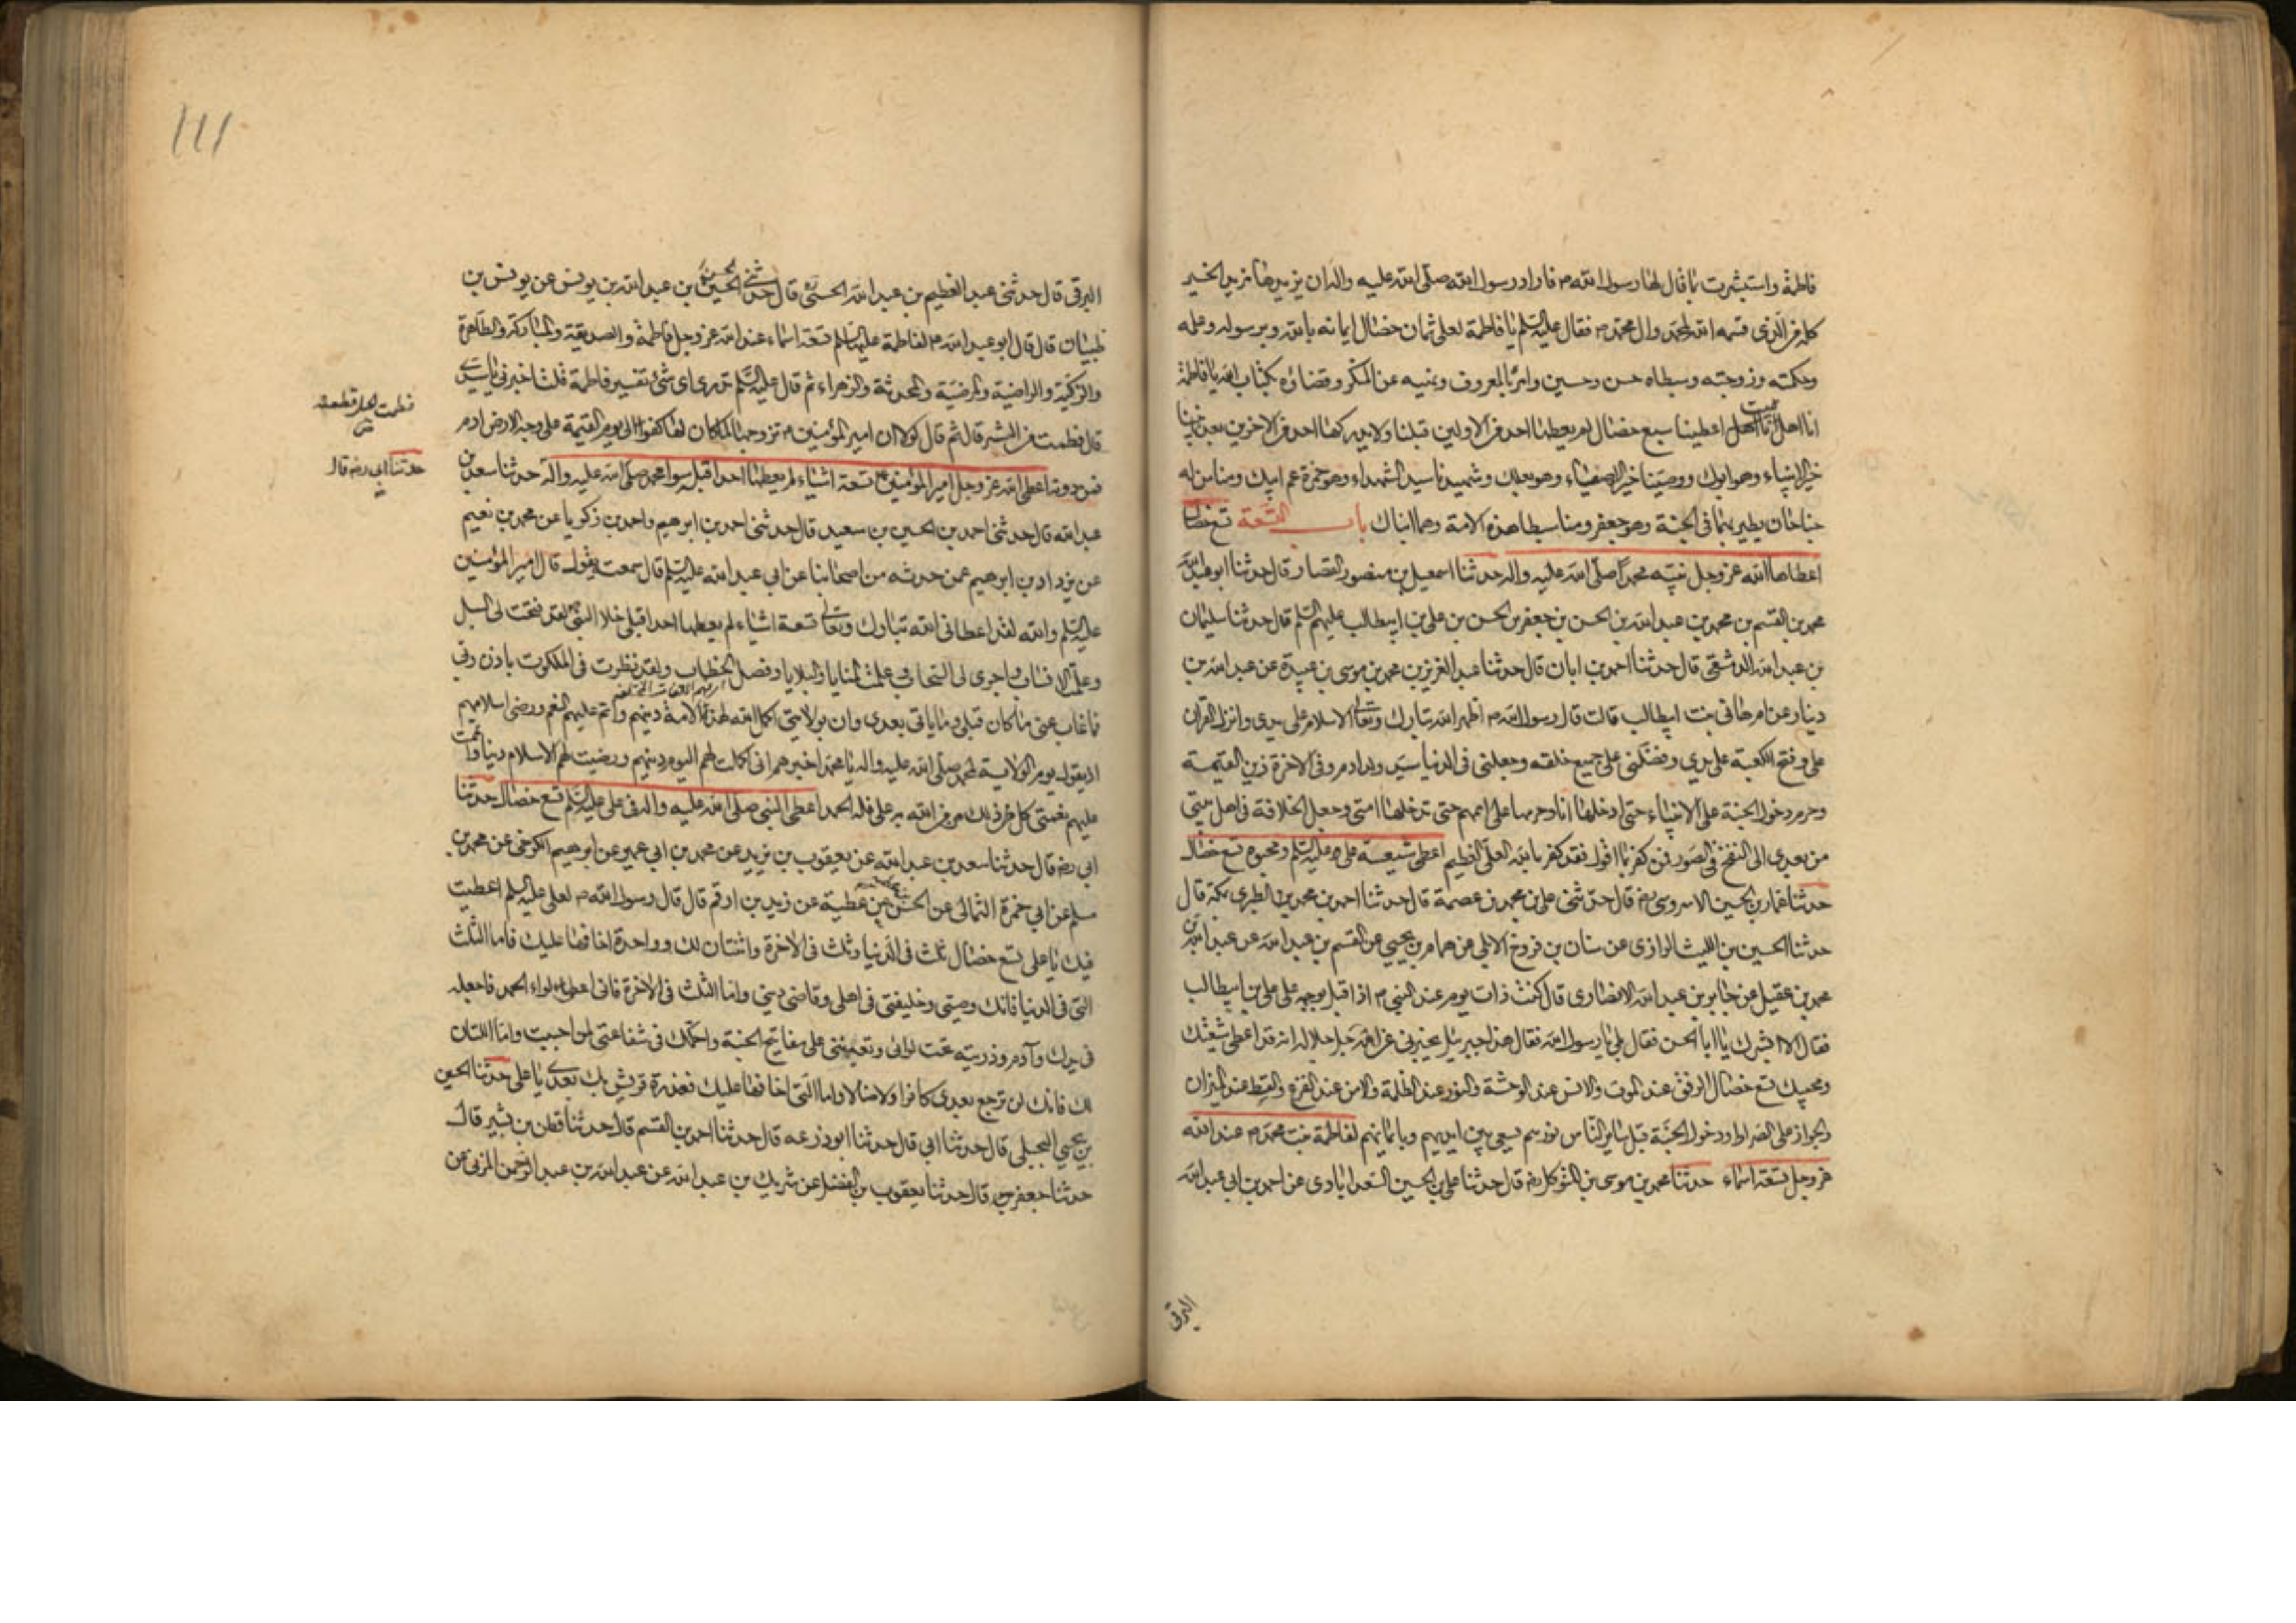 فاطمة واستبشرت بما قال لها رسول الله ص فاراد رسول الله صلى الله عليه واله ان يزيدها مزيد الخير
كله من الذي قسمه الله لمحمد وال محمد ص فقال عليه السلم يا فاطمة لعلى ثمان خصال ايمانه بالله وبرسوله وعلمه
وحكمته وزوجته وسبطاه حسن وحسين وامره بالمعروف ونهيه عن المنكر وقضاؤه بكتاب الله يا فاطمة
انا اهل بيت اعطينا سبع خصال لم يعطها احد من الاولين قبلنا ولا يدركها احد من الاخرين بعدنا نبينا
خير الانبياء وهو ابوك ووصينا خير الاوصياء وهو بعلك وشهيدنا سيد الشهداء وهو حمزة عم ابيك ومنا من له
جناحان يطير بهما في الجنة وهو جعفر ومنا سبطا هذه الامة وهما ابناك باب التسعة تسع خصال
اعطاها الله عز وجل نبيه محمدا صلى الله عليه واله حدثنا اسمعيل بن منصور القصار قال حدثنا ابو عبد الله
محمد بن القسم بن محمد بن عبد الله بن الحسن بن جعفر بن الحسن بن على بن ابيطالب عليهم السلم قال حدثنا سليمان
بن عبد الله الدمشقى قال حدثنا احمد بن ابان قال حدثنا عبد العزيز بن محمد بن موسى بن عبيدة عن عبد الله بن
دينار عن ام هانى بنت ابيطالب قالت قال رسول الله ص اظهر الله تبارك وتعالى الاسلام على يدى وانزل الفرقان
على وفتح الكعبة على يدي وفضلنى على جميع خلقه وجعلنى فى الدنيا سيد ولد ادم وفى الاخرة زين القيمة
وحرم دخول الجنة على الانبياء حتى ادخلها انا وحرمها على اممهم حتى تدخلها امتى وجعل الخلافة فى اهل بيتى
من بعدى الى النفخ فى الصور فمن كفر بما اقول فقد كفر بالله العلى العظيم اعطى شيعة على عليه السلم ومحبوه تسع خصال
حدثنا عمار بن الحسين الاسروسى رض قال حدثنى على بن محمد بن عصمة قال حدثنا احمد بن محمد بن الطبرى بمكة قال
حدثنا الحسين بن الليث الرازى عن سنان بن فروخ الابلى عن همام بن يحيى عن القسم بن عبد الله عن عبد الله بن
محمد بن عقيل عن جابر بن عبد الله الانصارى قال كنت ذات يوم عند النبى ص اذا قبل بوجهه على على بن ابيطالب
فقال الا ابشرك يا ابا الحسن فقال بلى يا رسول الله فقال هذا جبرئيل يخبرنى عن الله جل جلاله انه قد اعطى شيعتك
ومحبيك تسع خصال الرفق عند الموت والانس عند الوحشة والنور عند الظلمة والامن عند الفزع والقسط عند الميزان
والجواز على الصراط ودخول الجنة قبل ساير الناس نورهم يسعى بين ايديهم وبايمانهم لفاطمة بنت محمد ص عند الله
عز وجل تسعة اسماء حدثنا محمد بن موسى بن المتوكل رض قال حدثنا على بن الحسين السعدابادى عن احمد بن ابى عبد الله
البرقى
111
البرقى قال حدثنى عبد العظيم بن عبد الله الحسنى قال حدثنى الحسن بن عبد الله بن يونس عن يونس بن
ظبيان قال قال ابو عبد الله ع لفاطمة عليها السلم تسعة اسماء عند الله عز وجل فاطمة والصديقة والمباركة والطاهرة
والزكية والراضية والمرضية والمحدثة والزهراء ثم قال عليه السلم تدرى اى شئ تفسير فاطمة قلت اخبرنى يا سيدى
قال فطمت من الشر قال ثم قال لولا ان امير المؤمنين ع تزوجها لما كان لها كفو الى يوم القيمة على وجه الارض ادم
فمن دونه اعطى الله عز وجل امير المؤمنين ع تسعة اشياء لم يعطها احدا قبله سوا محمد صلى الله عليه واله حدثنا سعد بن
حدثنا ابى رض قال
عبد الله قال حدثنى احمد بن الحسين بن سعيد قال حدثنى احمد بن ابرهيم واحمد بن زكريا عن محمد بن نعيم
عن يزداد بن ابرهيم عمن حدثه من اصحابنا عن ابى عبد الله عليه السلم قال سمعته يقول قال امير المؤمنين
عليه السلم والله لقد اعطانى الله تبارك وتعالى تسعة اشياء لم يعطها احدا قبلى خلا النبى ص لقد فتحت لى السبل
وعلمت الانساب واجرى لى السحاب وعلمت المنايا والبلايا وفصل الخطاب ولقد نظرت فى الملكوت باذن ربى
فما غاب عنى ما كان قبلى وما ياتى بعدى وان بولايتى اكمل الله لهذه الامة دينهم واتم عليهم النعم ورضى اسلامهم
اذ يقول يوم الولاية لمحمد صلى الله عليه واله يا محمد اخبرهم انى اكملت لهم اليوم دينهم ورضيت لهم الاسلام دينا واتممت
عليهم نعمتى كل من ذلك من من الله به على فله الحمد اعطى النبى صلى الله عليه واله فى على عليه السلم تسع خصال حدثنا
ابى رض قال حدثنا سعد بن عبد الله عن يعقوب بن يزيد عن محمد بن ابى عمير عن ابرهيم الكرخى عن محمد بن
مسلم عن ابى حمزة الثمالى عن الحسن بن عطية عن زيد بن ارقم قال قال رسول الله ص لعلى عليه السلم اعطيت
فيك يا على تسع خصال ثلث فى الدنيا وثلث فى الاخرة واثنتان لك وواحدة اخافها عليك فاما الثلث
التى فى الدنيا فانك وصيتى وخليفتى فى اهلى وقاضى دينى واما الثلث فى الاخرة فانى اعطى لواء الحمد فاجعله
فى يدك وآدم وذريته تحت لوائى وتعيننى على مفاتيح الجنة واحكمك فى شفاعتى لمن احببت واما اللتان
لك فانك لن ترجع بعدى كافرا ولا ضالا واما التى اخافها عليك فغدرة قريش بك بعدى يا على حدثنا الحسين
بن يحيى البجلى قال حدثنا ابى قال حدثنا ابو زرعه قال حدثنا احمد بن القسم قال حدثنا قطن بن بشير قال
حدثنا جعفر قال حدثنا يعقوب بن الفضل عن شريك بن عبد الله عن عبد الله بن عبد الرحمن المزنى عن